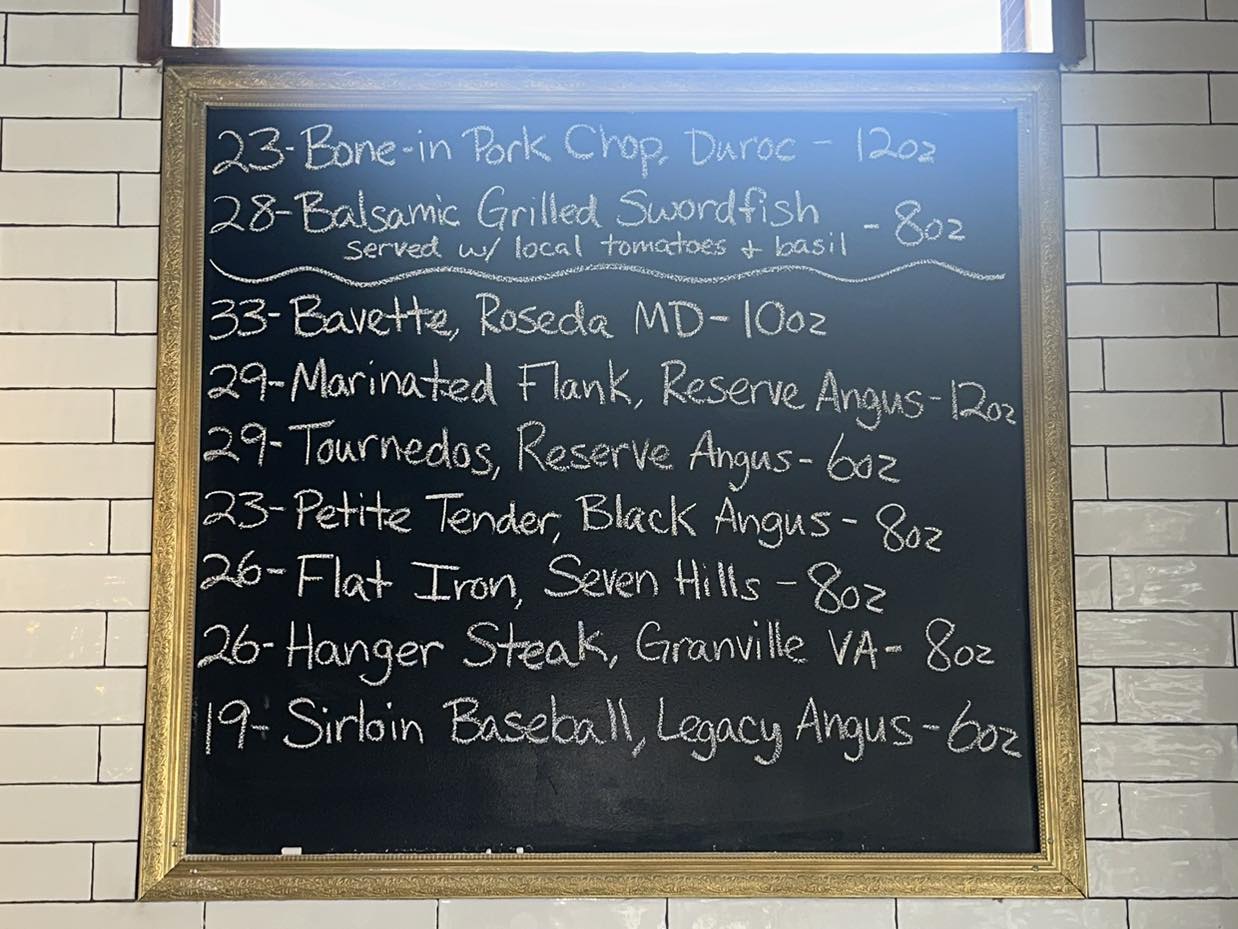 23-Bone-in Pork Chop, Duroc - 12oz
28-Balsamic Grilled Swordfish - 8oz
served w/ local tomatoes + basil
33-Bavette, Roseda MD-10oz
29-Marinated Flank, Reserve Angus-12oz
29-Tournedos, Reserve Angus-6oz
23-Petite Tender, Black Angus-8oz
26-Flat Iron, Seven Hills-8oz
26-Hanger Steak, Granville VA-8oz
19-Sirloin Baseball, Legacy Angus-6oz